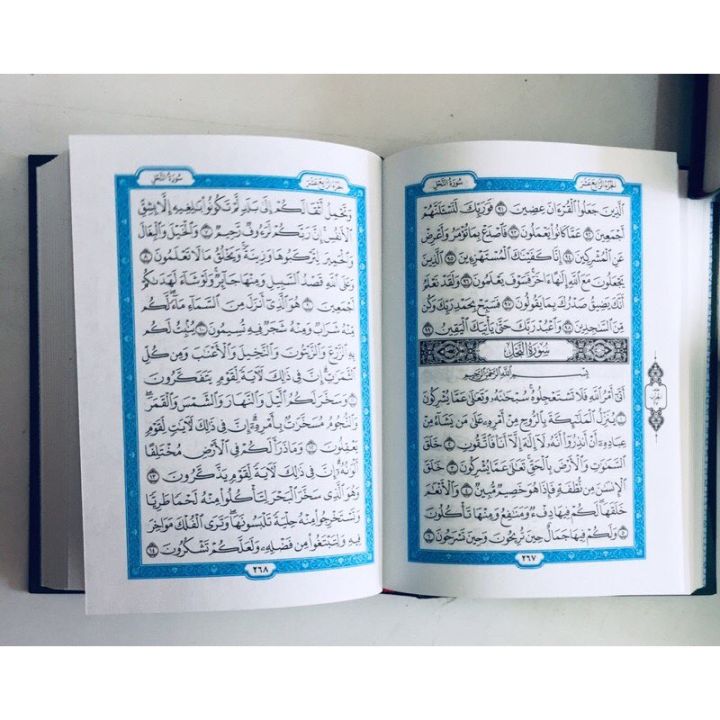 الجزء الرابع عشر
سورة النحل
الَّذِينَ جَعَلُوا الْقُرْءَانَ عِضِينَ ٩١ فَوَرَبِّكَ لَنَسْـَٔلَنَّهُمْ
أَجْمَعِينَ ٩٢ عَمَّا كَانُوا يَعْمَلُونَ ٩٣ فَاصْدَعْ بِمَا تُؤْمَرُ وَأَعْرِضْ
عَنِ الْمُشْرِكِينَ ٩٤ إِنَّا كَفَيْنَاكَ الْمُسْتَهْزِءِينَ ٩٥ الَّذِينَ
يَجْعَلُونَ مَعَ اللَّهِ إِلَٰهًا ءَاخَرَ فَسَوْفَ يَعْلَمُونَ ٩٦ وَلَقَدْ نَعْلَمُ
أَنَّكَ يَضِيقُ صَدْرُكَ بِمَا يَقُولُونَ ٩٧ فَسَبِّحْ بِحَمْدِ رَبِّكَ وَكُن
مِّنَ السَّاجِدِينَ ٩٨ وَاعْبُدْ رَبَّكَ حَتَّىٰ يَأْتِيَكَ الْيَقِينُ ٩٩
سُورَةُ النَّحْلِ
بِسْمِ اللَّهِ الرَّحْمَٰنِ الرَّحِيمِ
أَتَىٰ أَمْرُ اللَّهِ فَلَا تَسْتَعْجِلُوهُ سُبْحَانَهُ وَتَعَالَىٰ عَمَّا يُشْرِكُونَ
١ يُنَزِّلُ الْمَلَائِكَةَ بِالرُّوحِ مِنْ أَمْرِهِ عَلَىٰ مَن يَشَاءُ مِنْ
عِبَادِهِ أَنْ أَنذِرُوا أَنَّهُ لَا إِلَٰهَ إِلَّا أَنَا فَاتَّقُونِ ٢ خَلَقَ
السَّمَاوَاتِ وَالْأَرْضَ بِالْحَقِّ تَعَالَىٰ عَمَّا يُشْرِكُونَ ٣ خَلَقَ
الْإِنسَانَ مِن نُّطْفَةٍ فَإِذَا هُوَ خَصِيمٌ مُّبِينٌ ٤ وَالْأَنْعَامَ
خَلَقَهَا لَكُمْ فِيهَا دِفْءٌ وَمَنَافِعُ وَمِنْهَا تَأْكُلُونَ
٥ وَلَكُمْ فِيهَا جَمَالٌ حِينَ تُرِيحُونَ وَحِينَ تَسْرَحُونَ ٦
٢٦٧
الجزء الرابع عشر
سورة النحل
وَتَحْمِلُ أَثْقَالَكُمْ إِلَىٰ بَلَدٍ لَّمْ تَكُونُوا بَالِغِيهِ إِلَّا بِشِقِّ
الْأَنفُسِ إِنَّ رَبَّكُمْ لَرَءُوفٌ رَّحِيمٌ ٧ وَالْخَيْلَ وَالْبِغَالَ
وَالْحَمِيرَ لِتَرْكَبُوهَا وَزِينَةً وَيَخْلُقُ مَا لَا تَعْلَمُونَ ٨
وَعَلَى اللَّهِ قَصْدُ السَّبِيلِ وَمِنْهَا جَائِرٌ وَلَوْ شَاءَ لَهَدَاكُمْ
أَجْمَعِينَ ٩ هُوَ الَّذِي أَنزَلَ مِنَ السَّمَاءِ مَاءً لَّكُم
مِّنْهُ شَرَابٌ وَمِنْهُ شَجَرٌ فِيهِ تُسِيمُونَ ١٠ يُنبِتُ لَكُم
بِهِ الزَّرْعَ وَالزَّيْتُونَ وَالنَّخِيلَ وَالْأَعْنَابَ وَمِن كُلِّ
الثَّمَرَاتِ إِنَّ فِي ذَٰلِكَ لَآيَةً لِّقَوْمٍ يَتَفَكَّرُونَ
١١ وَسَخَّرَ لَكُمُ اللَّيْلَ وَالنَّهَارَ وَالشَّمْسَ وَالْقَمَرَ
وَالنُّجُومُ مُسَخَّرَاتٌ بِأَمْرِهِ إِنَّ فِي ذَٰلِكَ لَآيَاتٍ لِّقَوْمٍ
يَعْقِلُونَ ١٢ وَمَا ذَرَأَ لَكُمْ فِي الْأَرْضِ مُخْتَلِفًا
أَلْوَانُهُ إِنَّ فِي ذَٰلِكَ لَآيَةً لِّقَوْمٍ يَذَّكَّرُونَ ١٣
وَهُوَ الَّذِي سَخَّرَ الْبَحْرَ لِتَأْكُلُوا مِنْهُ لَحْمًا طَرِيًّا
وَتَسْتَخْرِجُوا مِنْهُ حِلْيَةً تَلْبَسُونَهَا وَتَرَى الْفُلْكَ مَوَاخِرَ
فِيهِ وَلِتَبْتَغُوا مِن فَضْلِهِ وَلَعَلَّكُمْ تَشْكُرُونَ ١٤
٢٦٨